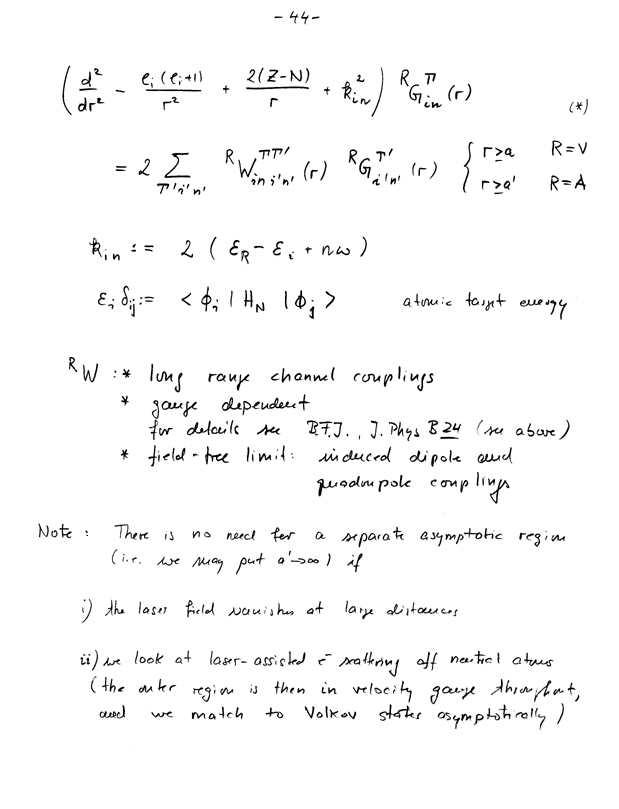 - 44 -
( d²/dr² - ℓᵢ(ℓᵢ+1)/r² + 2(Z-N)/r + k²ᵢₙ ) ᴿG^Π_in (r) (*)
= 2 Σ_Π'i'n' ᴿW^ΠΠ'_in i'n' (r) ᴿG^Π'_i'n' (r) { r ≥ a R=V
r ≥ a' R=A
k_in := 2 ( ε_R - ε_i + nω )
ε_i δ_ij := < ϕ_i | H_N | ϕ_j > atomic target energy
ᴿW : * long range channel couplings
* gauge dependent
for details see B.F.J., J. Phys B 24 (see above)
* field-free limit: induced dipole and
quadrupole couplings
Note : There is no need for a separate asymptotic region
(i.e. we may put a'→∞) if
i) the laser field vanishes at large distances
ii) we look at laser-assisted e⁻ scattering off neutral atoms
(the outer region is then in velocity gauge throughout,
and we match to Volkov states asymptotically)